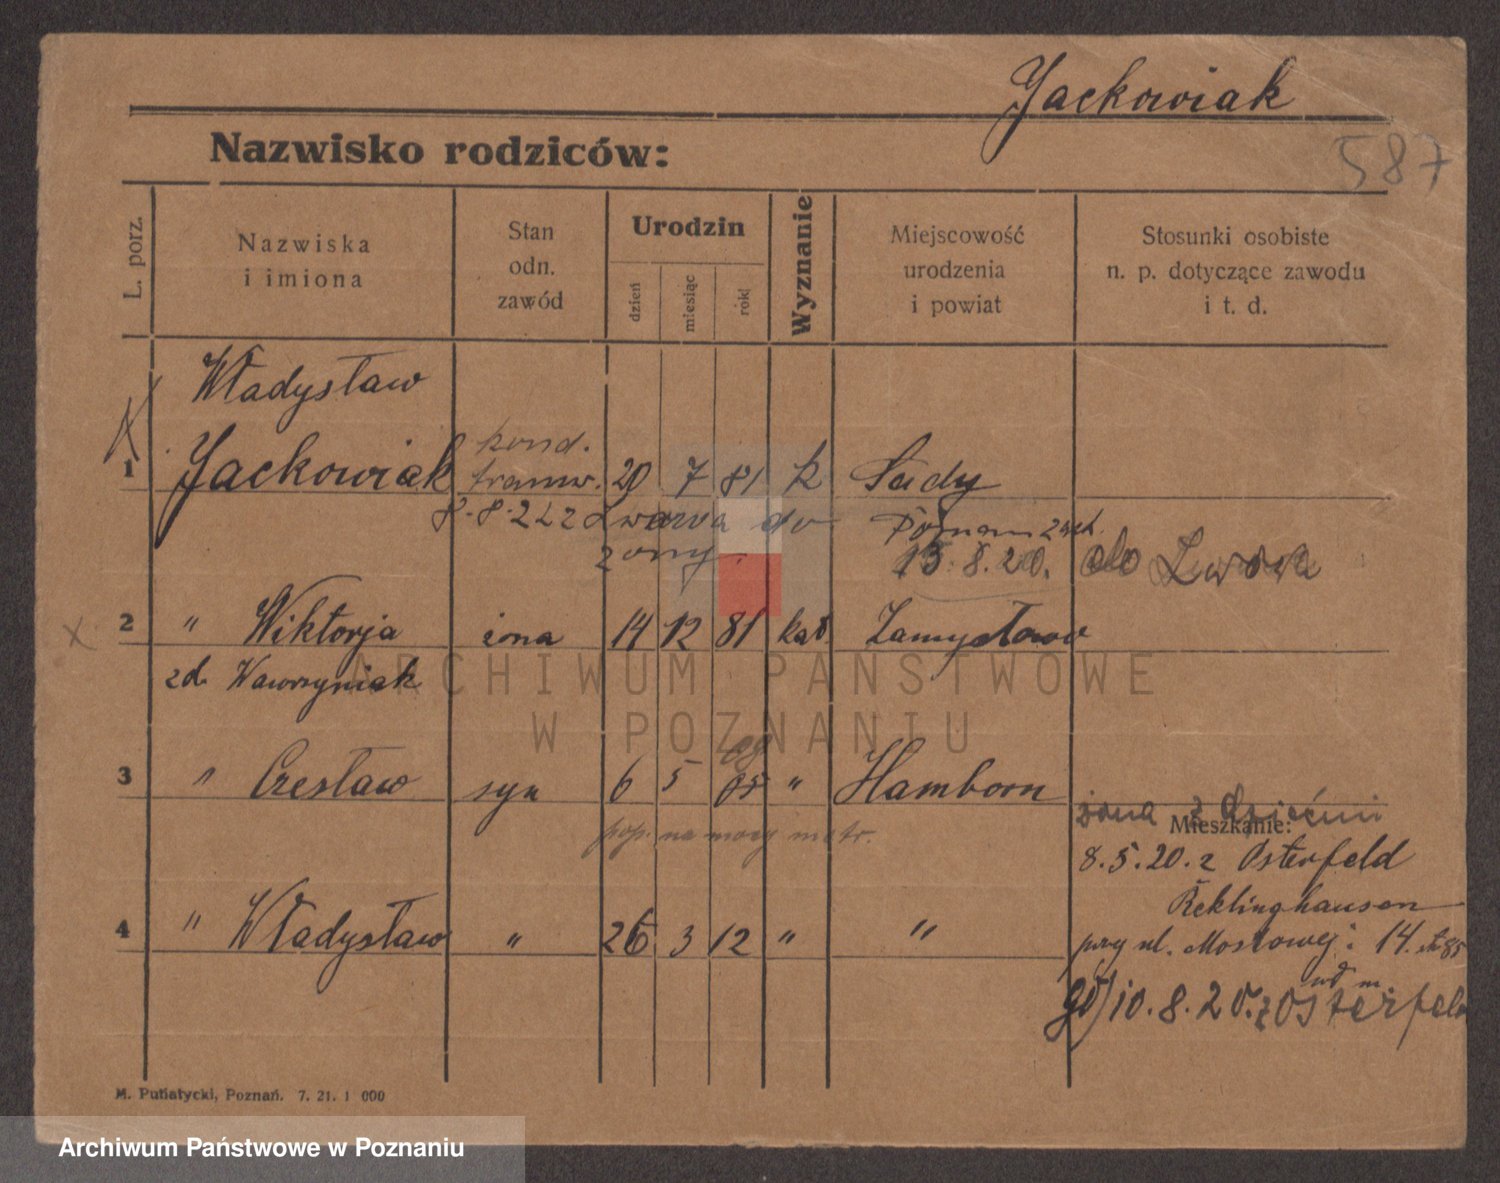 Jackowiak
587
Nazwisko rodziców:
L. porz.
Nazwiska
i imiona
Stan
odn.
zawód
Urodzin
dzień
miesiąc
rok
Wyznanie
Miejscowość
urodzenia
i powiat
Stosunki osobiste
n. p. dotyczące zawodu
i t. d.
Władysław
1 Jackowiak kond. tramw. 20 7 81 k Sady
8.8.22 z Lwowa do żony.
Poznań zach.
13.8.20. do Lwowa
2 " Wiktorja żona 14 12 81 kat. Zamysłowo
zd. Wawrzyniak
3 " Czesław syn 6 5 05 " Hamborn
09
pop. na mocy metr.
żona z dziećmi
Mieszkanie:
8.5.20. z Osterfeld
Reklinghausen
4 " Władysław " 26 3 12 " "
przy ul. Mostowej 14.
10.8.20. z Osterfeld
M. Putiatycki, Poznań. 7. 21. 1 000
ARCHIWUM PAŃSTWOWE
W POZNANIU
Archiwum Państwowe w Poznaniu